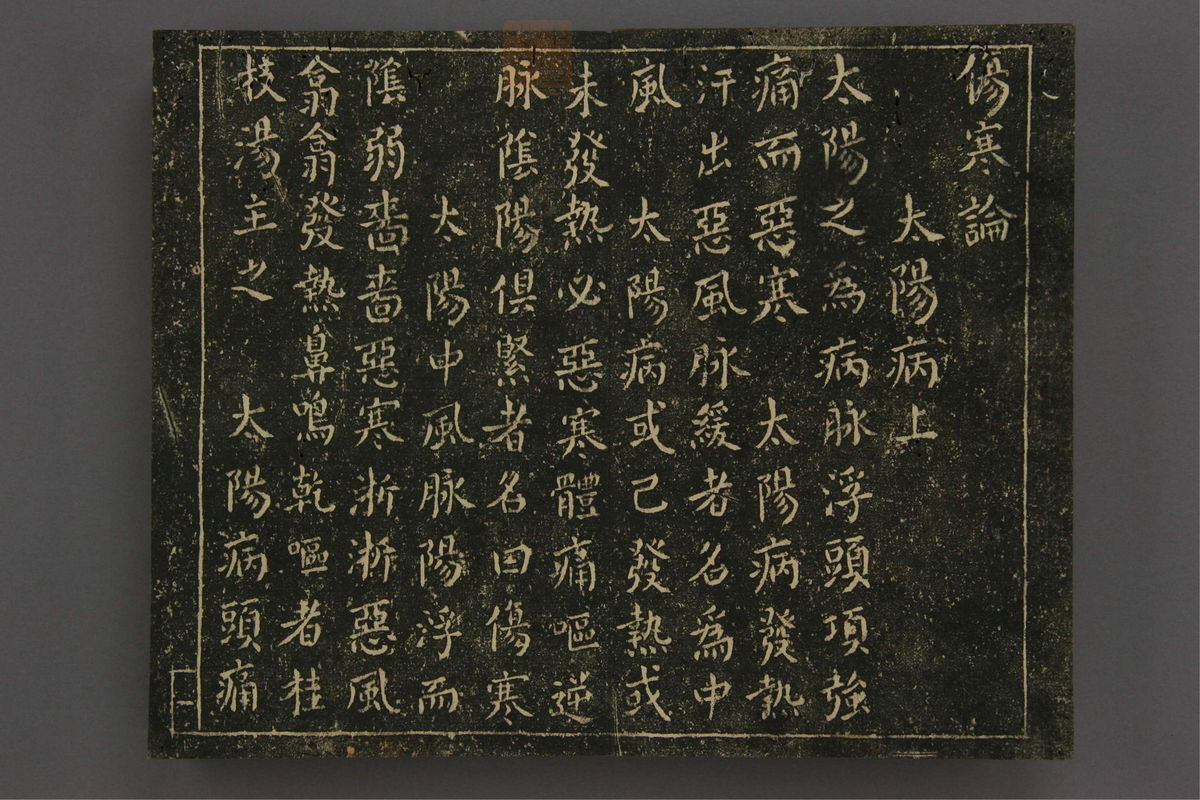 傷寒論
太陽病上
太陽之為病脉浮頭項強
痛而惡寒　太陽病發熱
汗出惡風脉緩者名爲中
風　太陽病或已發熱或
未發熱必惡寒體痛嘔逆
脉陰陽俱緊者名曰傷寒
太陽中風脉陽浮而
陰弱嗇嗇惡寒淅淅惡風
翕翕發熱鼻鳴乾嘔者桂
枝湯主之　太陽病頭痛
一